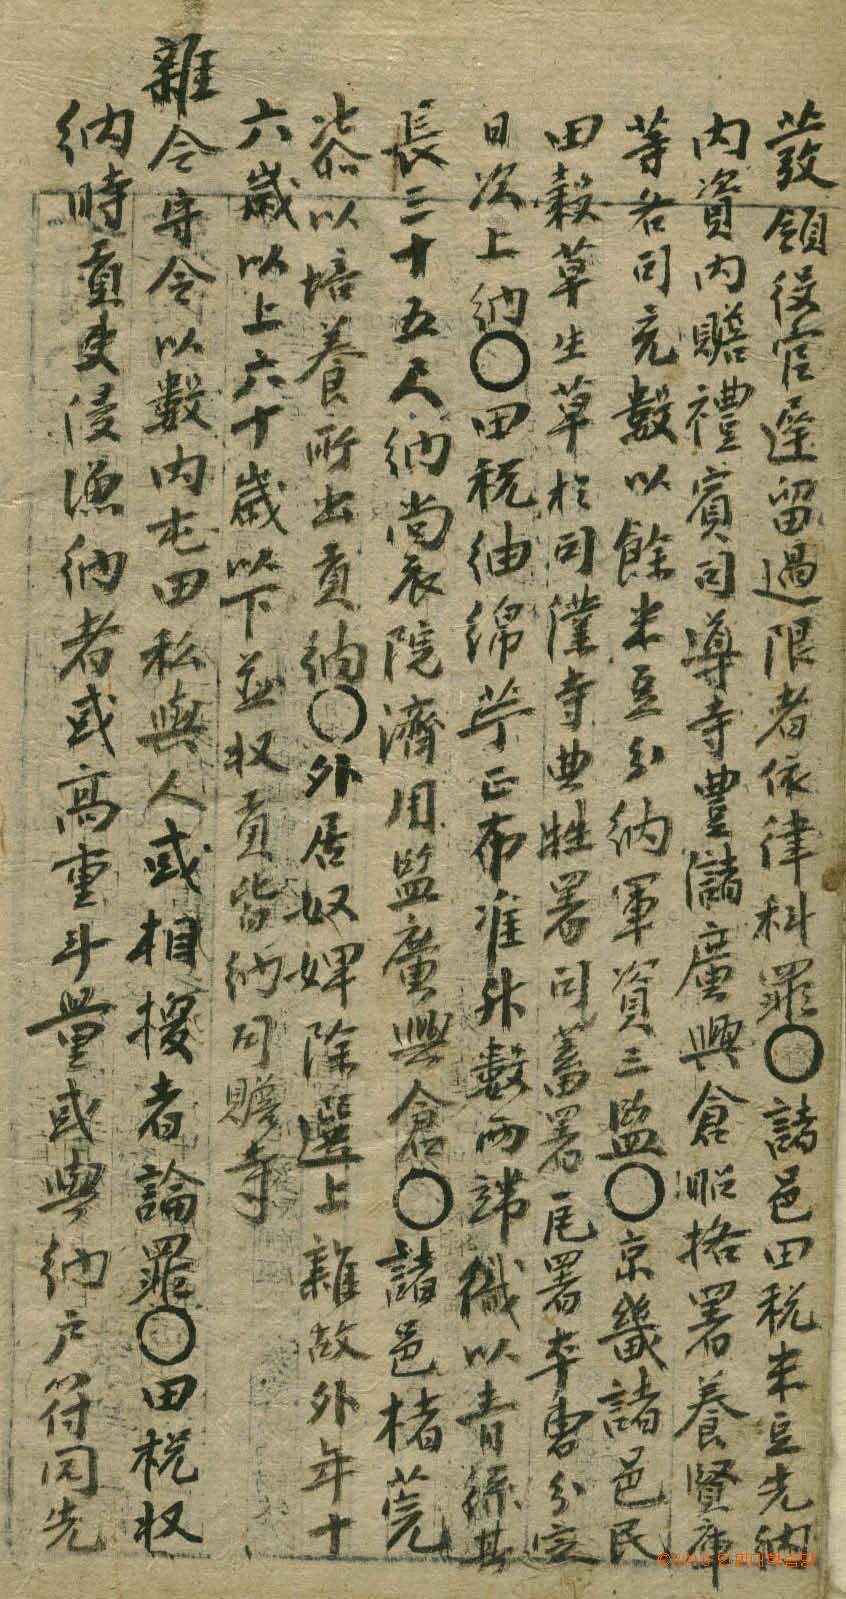 發領役官遲留過限者依律科罪○諸邑田稅米豆先納
內資內贍禮賓司導寺豊儲廣興倉昭格署養賢庫
等各司充數以餘米豆分納軍資三監○京畿諸邑民
田穀草生草於司僕寺典牲署司蓄署瓦署本曹分定
日次上納○田稅紬綿苧正布准升數兩端織以青絲其
長三十五尺納尚衣院濟用監廣興倉○諸邑楮莞
漆以培養所出貢納○外居奴婢除選上雜故外年十
六歲以上六十歲以下並收貢皆納司贍寺
雜令守令以數內屯田私與人或相換者論罪○田稅收
納時貢吏侵漁納者或高重斗量或與納戶符同先
©2010 한권대학습당